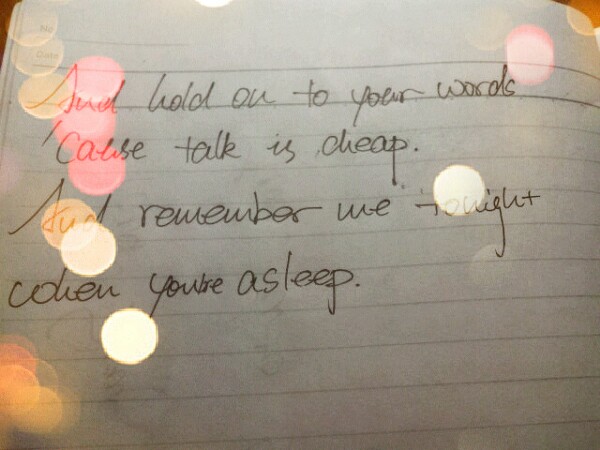 No
Date
And hold on to your words
'Cause talk is cheap.
And remember me tonight
when you're asleep.